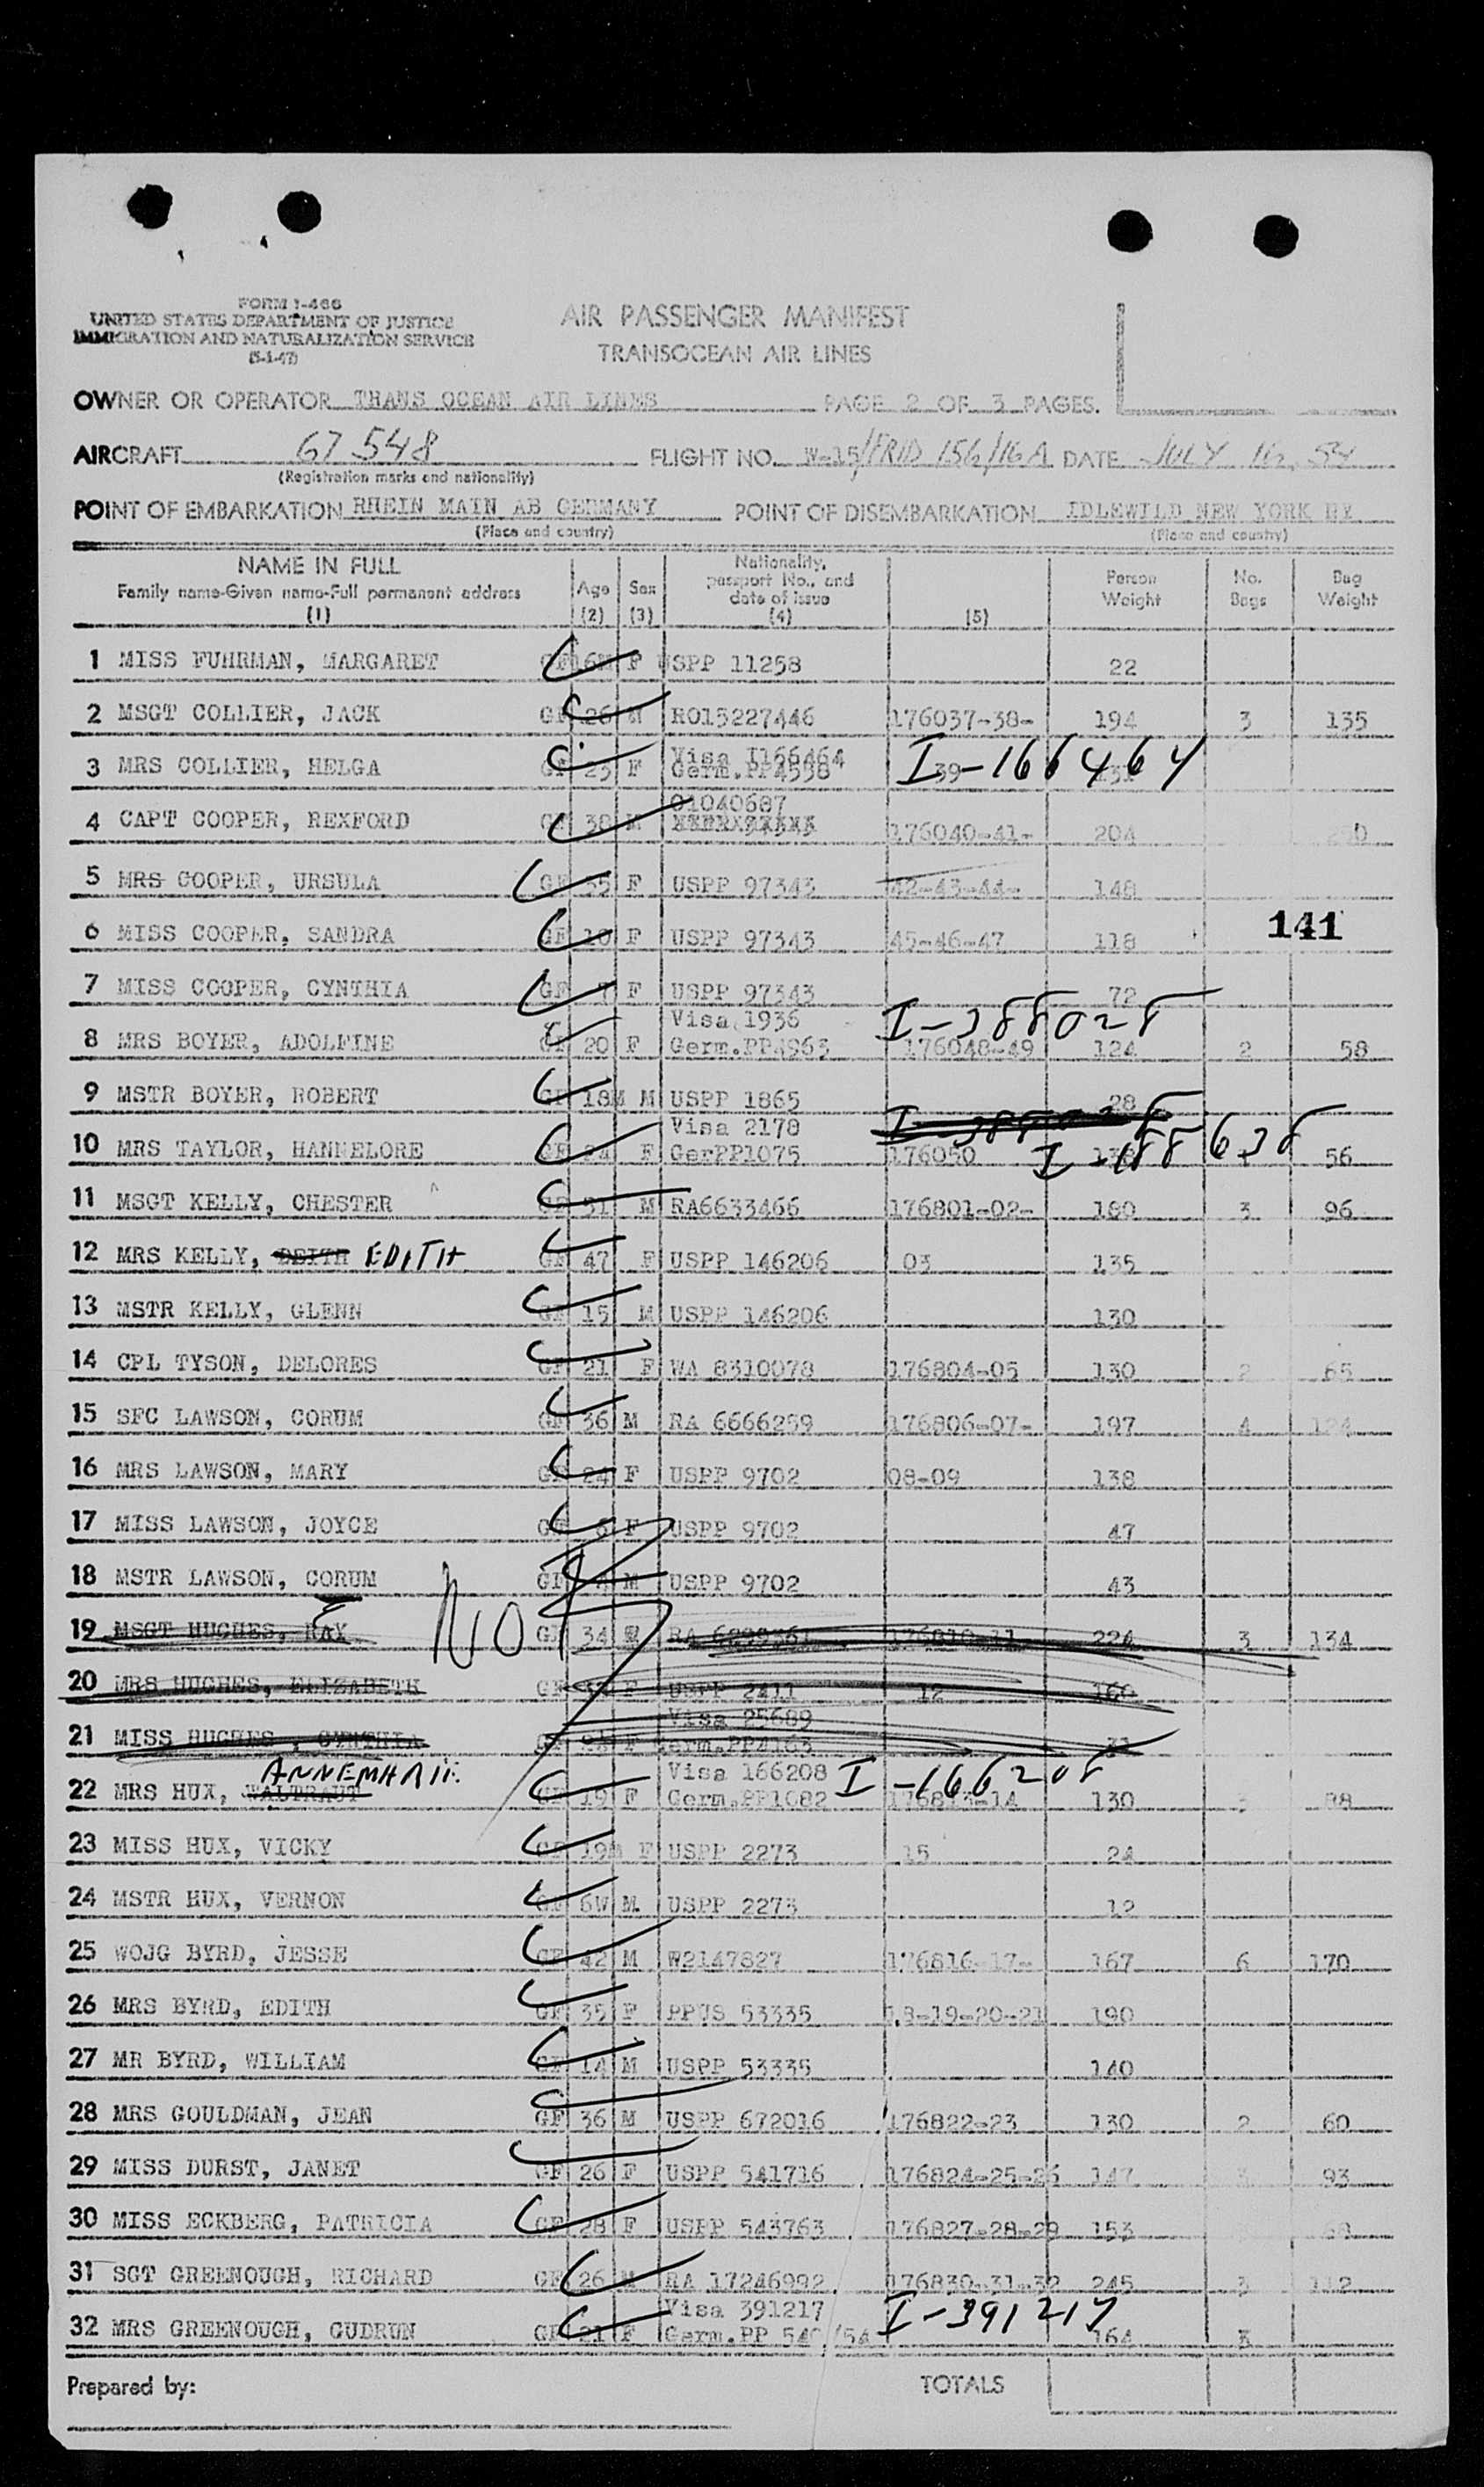 FORM I-466
UNITED STATES DEPARTMENT OF JUSTICE
IMMIGRATION AND NATURALIZATION SERVICE
(5-1-47)
AIR PASSENGER MANIFEST
TRANSOCEAN AIR LINES
OWNER OR OPERATOR TRANS OCEAN AIR LINES PAGE 2 OF 3 PAGES.
AIRCRAFT 67548 FLIGHT NO. W-15/FRID 156/16A DATE JULY 16, 54
(Registration marks and nationality)
POINT OF EMBARKATION RHEIN MAIN AB GERMANY POINT OF DISEMBARKATION IDLEWILD NEW YORK NY
(Place and country) (Place and country)
NAME IN FULL Family name-Given name-Full permanent address (1) Age (2) Sex (3) Nationality, passport No., and date of issue (4) (5) Person Weight No. Bags Bag Weight
1 MISS FUHRMAN, MARGARET GF 6M F USPP 11258 22
2 MSGT COLLIER, JACK GF 26 M RO15227446 176037-38- 194 3 135
3 MRS COLLIER, HELGA GF 23 F Visa I166464 Germ.PP4538 39 I-166464
4 CAPT COOPER, REXFORD GF 38 M 01040687 176040-41- 204
5 MRS COOPER, URSULA GF 35 F USPP 97343 42-43-44- 148
6 MISS COOPER, SANDRA GF 10 F USPP 97343 45-46-47 118 141
7 MISS COOPER, CYNTHIA GF 7 F USPP 97343 72
8 MRS BOYER, ADOLFINE GF 20 F Visa 1936 Germ.PP4963 I-388028 176048-49 124 2 58
9 MSTR BOYER, ROBERT GF 18M M USPP 1865 28
10 MRS TAYLOR, HANNELORE GF F Visa 2178 GerPP1075 176050 I-188638 56
11 MSGT KELLY, CHESTER GF 31 M RA6633466 176801-02- 180 3 96
12 MRS KELLY, DEITH EDITH GF 47 F USPP 146206 03 135
13 MSTR KELLY, GLENN GF 15 M USPP 146206 130
14 CPL TYSON, DELORES GF 21 F WA 8310078 176804-05 130 2 65
15 SFC LAWSON, CORUM GF 36 M RA 6666259 176806-07- 197 4 124
16 MRS LAWSON, MARY GF 24 F USPP 9702 08-09 138
17 MISS LAWSON, JOYCE GF 6 F USPP 9702 47
18 MSTR LAWSON, CORUM GF M USPP 9702 43
19 MSGT HUGHES, RAY NO GF 34 M RA 176810-11 224 3 134
20 MRS HUGHES, ELIZABETH GF F USPP 2411 12 160
21 MISS HUGHES, CYNTHIA GF F Visa 25689 Germ.PP4163
22 MRS HUX, WALTRAUT ANNEMARIE GF 19 F Visa 166208 Germ.PP1082 I-166208 176813-14 130 3 88
23 MISS HUX, VICKY GF 19M F USPP 2273 15 24
24 MSTR HUX, VERNON GF 6W M USPP 2273 12
25 WOJG BYRD, JESSE GF 42 M W2147827 176816-17- 167 6 170
26 MRS BYRD, EDITH GF 35 F PPUS 53335 18-19-20-21 190
27 MR BYRD, WILLIAM GF 14 M USPP 53335 140
28 MRS GOULDMAN, JEAN GF 36 M USPP 672016 176822-23 130 2 60
29 MISS DURST, JANET GF 26 F USPP 541716 176824-25-26 147 3 93
30 MISS ECKBERG, PATRICIA GF 28 F USPP 543763 176827-28-29 153
31 SGT GREENOUGH, RICHARD GF 26 M RA 17246992 176830-31-32 245 3 112
32 MRS GREENOUGH, GUDRUN GF 21 F Visa 391217 Germ.PP 540/54 I-391217 164 3
Prepared by: TOTALS